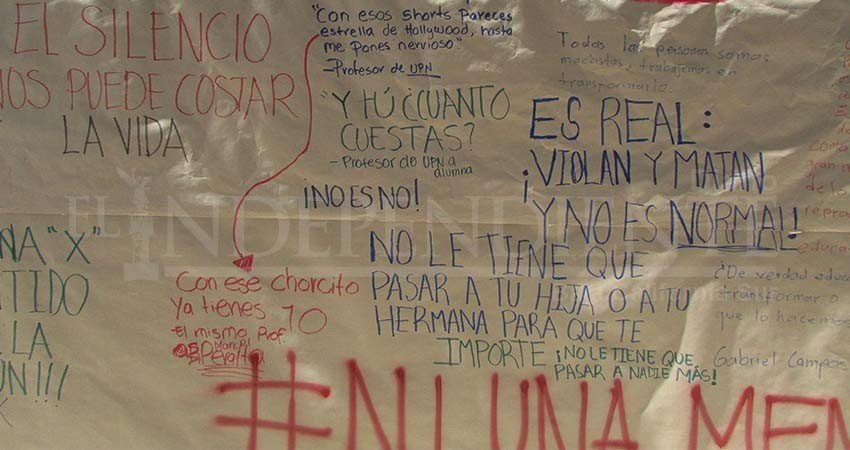 EL SILENCIO
NOS PUEDE COSTAR
LA VIDA
"Con esos shorts pareces
estrella de Hollywood, hasta
me pones nervioso"
-Profesor de UPN
Y TÚ ¿CUANTO
CUESTAS?
- Profesor de UPN a
alumna
¡NO ES NO!
Todas las personas somos
machistas, trabajemos en
transformarlo
ES REAL:
¡VIOLAN Y MATAN
Y NO ES NORMAL!
NO LE TIENE QUE
PASAR A TU HIJA O A TU
HERMANA PARA QUE TE
IMPORTE
¡NO LE TIENE QUE
PASAR A NADIE MÁS!
Con ese chorcito
Ya tienes 10
-El mismo Prof.
Peralta
NA "X"
TIDO
LA
ÚN!!!
comb
gran
de lo
repro
educa
¿De verdad educa
transformar o
que lo hacemos
Gabriel Campos
#NI UNA MEN
EL INDEPENDIEN